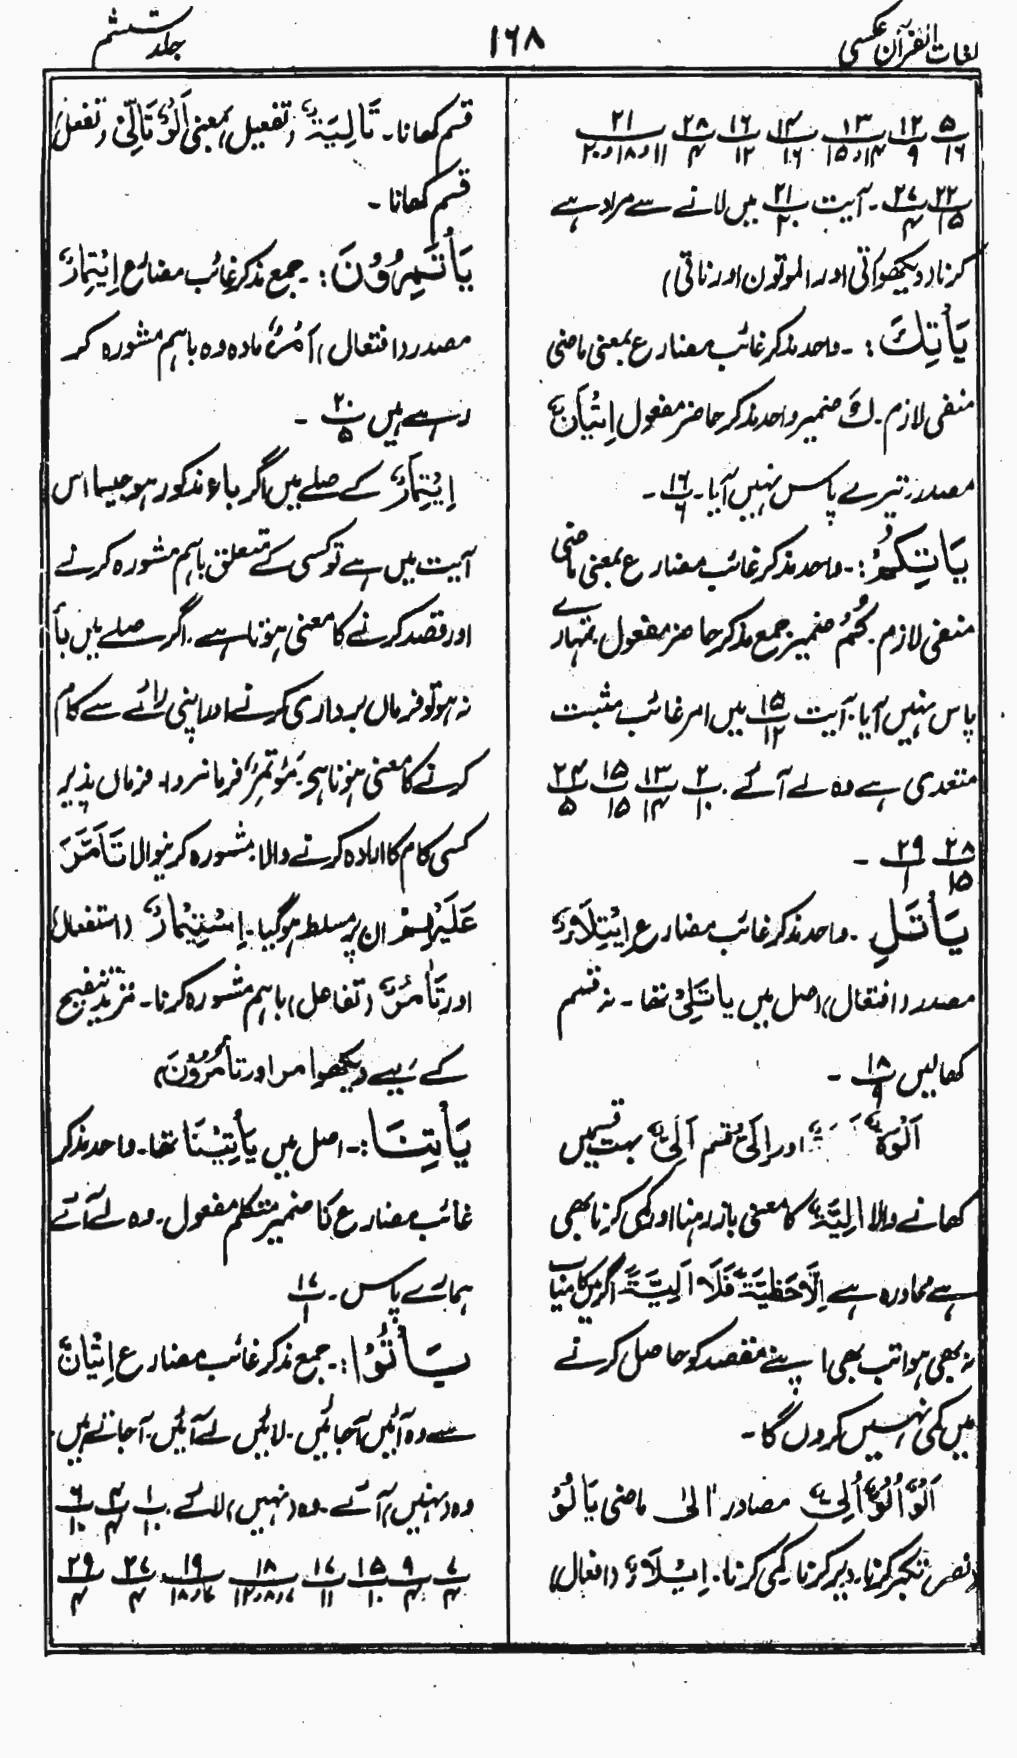 لغات القرآن عکسی
۱۶۸
جلد ششم
۵/۱۶ ۱۲/۹ ۱۳/۱۴و۱۵ ۱۴/۱۶ ۱۶/۱۲ ۲۸/۴ ۲۱/۱۱و۱۸و۲۰
۲۲/۱۵ ۲۷/۴ ۔ آیت ۲۱/۲۰ میں لانے سے مراد ہے
کرنا (دیکھو اُتی اور الموتون اور ناتی)
یَأْتِكَ : ۔ واحد مذکر غائب مضارع بمعنی ماضی
منفی لازم ۔ كَ ضمیر واحد مذکر حاضر مفعول اِتْیَانٌ
مصدر ۔ تیرے پاس نہیں آیا ۔ ۱۶/۶ ۔
یَاتِكُمْ : ۔ واحد مذکر غائب مضارع بمعنی ماضی
منفی لازم ۔ كُمْ ضمیر جمع مذکر حاضر مفعول ، تمہارے
پاس نہیں آیا ۔ آیت ۱۵/۱۲ میں امر غائب مثبت
متعدی ہے وہ لے آئے ۔ ۲/۱۰ ۱۳/۱۴ ۱۵/۱۵ ۲۴/۵
۲۸/۱۵ ۲۹/۱ ۔
یَأْتَلِ ۔ واحد مذکر غائب مضارع اِیْتِلَاءٌ
مصدر (افتعال) اصل میں یاتَلِیْ تھا ۔ نہ قسم
کھالیں ۱۸/۹ ۔
اَلْوَةٌ اور اِلیٰ قسم اَلِیٌّ بہت قسمیں
کھانے والا اَلِیَّةٌ کا معنی باز رہنا اور کمی کرنا بھی
ہے محاورہ ہے اِلَّا حَظِیَّةٌ فَلَا اَلِیَّةٌ اگر میں کامیاب
نہ بھی ہوا تب بھی اپنے مقصد کو حاصل کرنے
میں کمی نہیں کروں گا ۔
اَلْوٌ اُلُوٌّ اُلِیٌّ مصادر الیٰ ماضی یَالُوْ
(نصر) تکبر کرنا ۔ دیر کرنا کمی کرنا ۔ اِیْلَاءٌ (افعال)
قسم کھانا ۔ تَالِیَةٌ (تفعیل) بمعنی اَلْوٌ تَأَلِّیْ (تفعل)
قسم کھانا ۔
یَأْتَمِرُوْنَ : ۔ جمع مذکر غائب مضارع اِیْتِمَارٌ
مصدر (افتعال) اَمْرٌ مادہ وہ باہم مشورہ کر
رہے ہیں ۲۰/۵ ۔
اِیْتِمَارٌ کے صلے میں اگر باء مذکور ہو جیسا اس
آیت میں ہے تو کسی کے متعلق باہم مشورہ کرنے
اور قصد کرنے کا معنی ہوتا ہے ۔ اگر صلے میں بأ
نہ ہو تو فرماں برداری کرنے اور اپنی رائے سے کام
کرنے کا معنی ہوتا ہی ۔ مُؤتَمِرٌ فرمانروا ۔ فرماں پذیر
کسی کام کا ارادہ کرنے والا ۔ مشورہ کرنیوالا تَأَمَّرَ
عَلَیْہِمْ ان پر مسلط ہو گیا ۔ اِسْتِیْمَارٌ (استفعال)
اور تَاٰمُرٌ (تفاعل) باہم مشورہ کرنا ۔ مزید تنقیح
کے لیے (دیکھو امر اور تأمُرُوْنَ)
یَأْتِنَا : ۔ اصل میں یَأْتِیْنَا تھا ۔ واحد مذکر
غائب مضارع نَا ضمیر متکلم مفعول ۔ وہ لے آئے
ہمارے پاس ۔ ۱۷/۱
یَأْتُوْا : ۔ جمع مذکر غائب مضارع اِتْیَانٌ
سے وہ آئیں آجائیں ۔ لائیں لے آئیں ۔ آجاتے ہیں ۔
وہ (نہیں) آئے ۔ وہ (نہیں) لائے ۔ ۱/۱۰ ۴/۴ ۶/۱۰
۷/۴ ۹/۴ ۱۵/۱۰ ۱۷/۱۱ ۱۸/۷،۸و۱۲ ۱۹/۷و۱۸ ۲۷/۴ ۲۹/۴